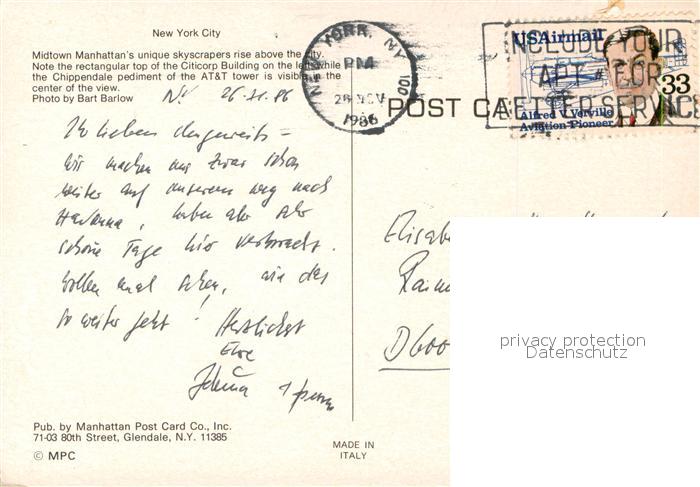 New York City
Midtown Manhattan's unique skyscrapers rise above the city.
Note the rectangular top of the Citicorp Building on the left while
the Chippendale pediment of the AT&T tower is visible in the
center of the view.
Photo by Bart Barlow
NY 26.11.86
Ihr lieben
wir machen uns zwar schon
weiter auf unserem Weg nach
Havanna, haben aber sehr
schöne Tage hier verbracht.
Wollen mal sehen, wie das
so weiter geht!
Herzlichst
Eure
NEW YORK, NY 100
PM
1986
INCLUDE YOUR
APT # FOR
BETTER SERVICE
USAirmail
33
Alfred V. Verville
Aviation Pioneer
POST CA
Elisab
Rain
D600
privacy protection
Datenschutz
Pub. by Manhattan Post Card Co., Inc.
71-03 80th Street, Glendale, N.Y. 11385
© MPC
MADE IN
ITALY